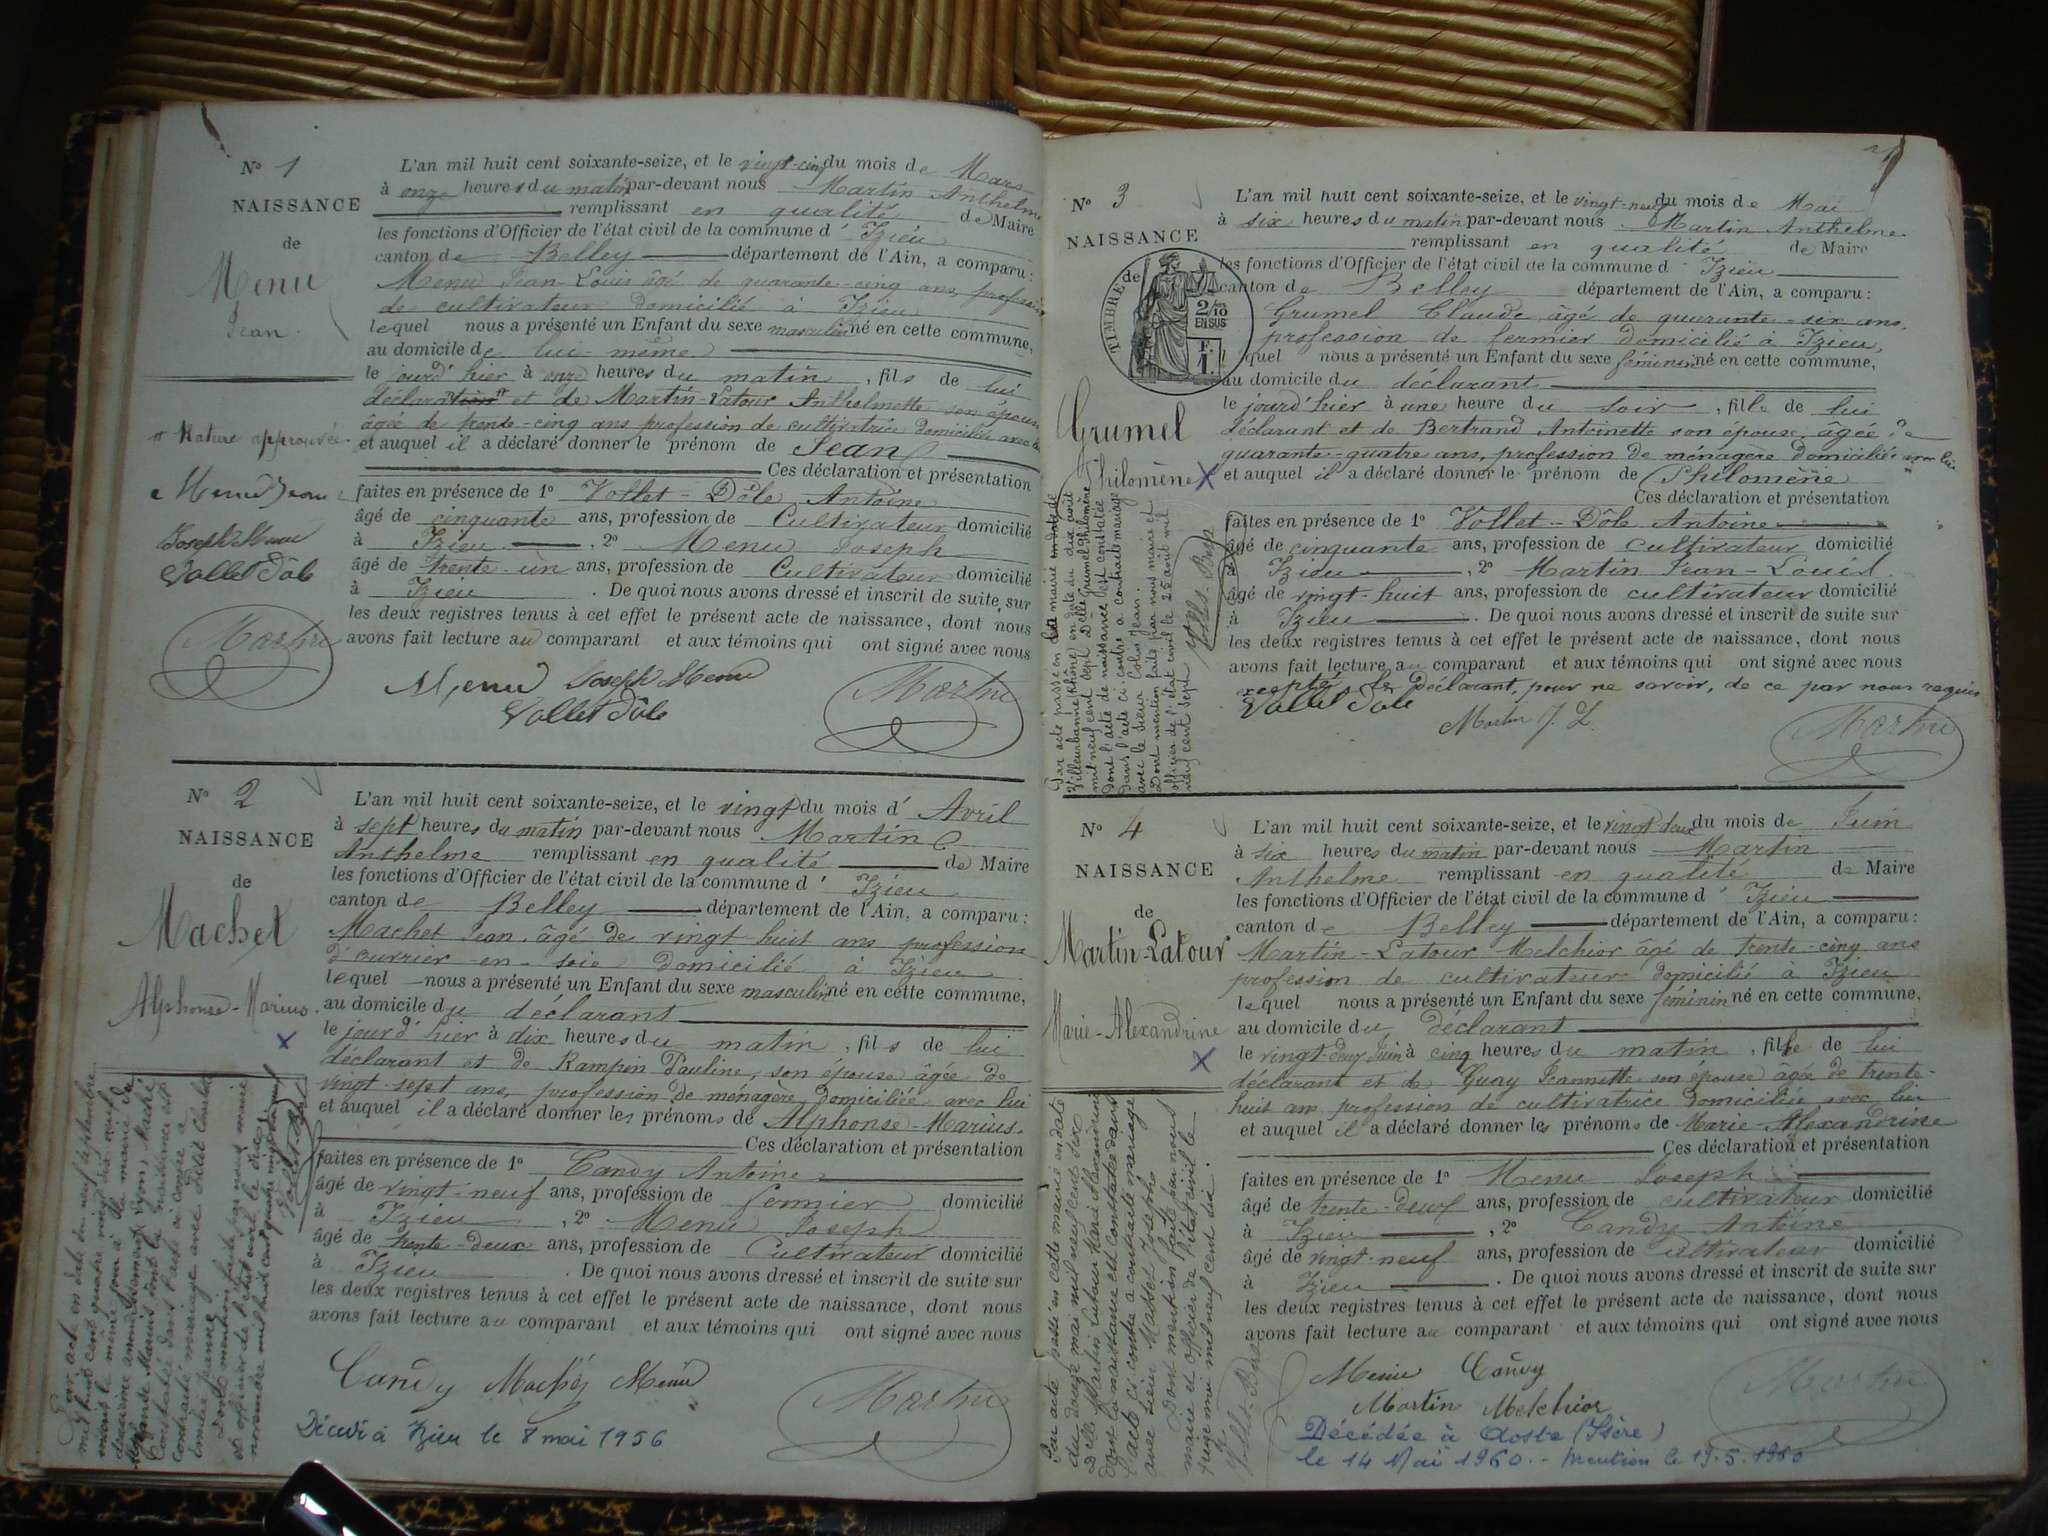 N° 1
NAISSANCE
de
Menu
Jean
L'an mil huit cent soixante-seize, et le vingt-cinq du mois de Mars
à onze heures du matin par-devant nous Martin Anthelme
remplissant en qualité de Maire
les fonctions d'Officier de l'état civil de la commune d' Izieu
canton de Belley département de l'Ain, a comparu :
Menu Jean-Louis âgé de quarante-cinq ans, profession
de cultivateur domicilié à Izieu
lequel nous a présenté un Enfant du sexe masculin né en cette commune,
au domicile de lui-même
le jourd'hier à onze heures du matin, fils de lui
déclarant et de Martin-Latour Anthelmette son épouse
âgée de trente-cinq ans profession de cultivatrice domiciliée avec lui
et auquel il a déclaré donner le prénom de Jean
Ces déclaration et présentation
faites en présence de 1° Vollet-Dôle Antoine
âgé de cinquante ans, profession de Cultivateur domicilié
à Izieu, 2° Menu Joseph
âgé de trente-un ans, profession de Cultivateur domicilié
à Izieu. De quoi nous avons dressé et inscrit de suite sur
les deux registres tenus à cet effet le présent acte de naissance, dont nous
avons fait lecture au comparant et aux témoins qui ont signé avec nous
approuvée
Menu Jean
Joseph Menu
Vollet Dôle
Martin
Menu Joseph Menu
Vollet Dôle
Martin
N° 2
NAISSANCE
de
Machet
Alphonse-Marius
L'an mil huit cent soixante-seize, et le vingt du mois d' Avril
à sept heures du matin par-devant nous Martin
Anthelme remplissant en qualité de Maire
les fonctions d'Officier de l'état civil de la commune d' Izieu
canton de Belley département de l'Ain, a comparu :
Machet Jean, âgé de vingt-huit ans profession
d'ouvrier-en-soie domicilié à Izieu
lequel nous a présenté un Enfant du sexe masculin né en cette commune,
au domicile du déclarant
le jourd'hier à dix heures du matin, fils de lui
déclarant et de Rampin Pauline, son épouse âgée de
vingt-sept ans, profession de ménagère domiciliée avec lui
et auquel il a déclaré donner les prénoms de Alphonse-Marius.
Ces déclaration et présentation
faites en présence de 1° Candy Antoine
âgé de vingt-neuf ans, profession de fermier domicilié
à Izieu, 2° Menu Joseph
âgé de trente-deux ans, profession de Cultivateur domicilié
à Izieu. De quoi nous avons dressé et inscrit de suite sur
les deux registres tenus à cet effet le présent acte de naissance, dont nous
avons fait lecture au comparant et aux témoins qui ont signé avec nous
Par acte en date du neuf septembre
mil huit cent quatre vingt dix neuf
Constatée dans l'acte ci contre a
contracté mariage avec
Dont mention faite par nous maire
et officier de l'état civil le
Candy Machet Menu
Martin
Décédé à Izieu le 8 mai 1956
N° 3
NAISSANCE
de
TIMBRE
2/10
EN SUS
F.
1.
Grumel
Philomène
L'an mil huit cent soixante-seize, et le vingt-neuf du mois de Mai
à six heures du matin par-devant nous Martin Anthelme
remplissant en qualité de Maire
les fonctions d'Officier de l'état civil de la commune d' Izieu
canton de Belley département de l'Ain, a comparu :
Grumel Claude âgé de quarante-six ans,
profession de fermier domicilié à Izieu,
lequel nous a présenté un Enfant du sexe féminin né en cette commune,
au domicile du déclarant
le jourd'hier à une heure du soir, fille de lui
déclarant et de Bertrand Antoinette son épouse âgée de
quarante-quatre ans, profession de ménagère domiciliée avec lui
et auquel il a déclaré donner le prénom de Philomène
Ces déclaration et présentation
faites en présence de 1° Vollet-Dôle Antoine
âgé de cinquante ans, profession de cultivateur domicilié
à Izieu, 2° Martin Jean-Louis
âgé de vingt-huit ans, profession de cultivateur domicilié
à Izieu. De quoi nous avons dressé et inscrit de suite sur
les deux registres tenus à cet effet le présent acte de naissance, dont nous
avons fait lecture au comparant et aux témoins qui ont signé avec nous
excepté le déclarant, pour ne savoir, de ce par nous requis
Par acte passé en la mairie de
Villeurbanne (Rhône) en date du dix août
mil neuf cent sept Delle Grumel Philomène
dont l'acte de naissance est constatée
dans l'acte ci contre a contracté mariage
avec le sieur Colin Jean.
Dont mention faite par nous maire et
officier de l'état civil le 25 août mil
neuf cent sept
Vollet Dôle
Martin J. L.
Martin
N° 4
NAISSANCE
de
Martin-Latour
Marie-Alexandrine
L'an mil huit cent soixante-seize, et le vingt-deux du mois de Juin
à six heures du matin par-devant nous Martin
Anthelme remplissant en qualité de Maire
les fonctions d'Officier de l'état civil de la commune d' Izieu
canton de Belley département de l'Ain, a comparu :
Martin-Latour Melchior âgé de trente-cinq ans
profession de cultivateur domicilié à Izieu
lequel nous a présenté un Enfant du sexe féminin né en cette commune,
au domicile du déclarant
le vingt-deux Juin à cinq heures du matin, fille de lui
déclarant et de Guay Jeannette son épouse âgée de trente-
huit ans profession de cultivatrice domiciliée avec lui
et auquel il a déclaré donner les prénoms de Marie-Alexandrine
Ces déclaration et présentation
faites en présence de 1° Menu Joseph
âgé de trente-deux ans, profession de cultivateur domicilié
à Izieu, 2° Candy Antoine
âgé de vingt-neuf ans, profession de cultivateur domicilié
à Izieu. De quoi nous avons dressé et inscrit de suite sur
les deux registres tenus à cet effet le présent acte de naissance, dont nous
avons fait lecture au comparant et aux témoins qui ont signé avec nous
Par acte passé en cette mairie en date
du douze mai mil neuf cent six
Delle Martin Latour Marie Alexandrine
dont la naissance est constatée dans
l'acte ci contre a contracté mariage
avec sieur Masset Joseph
Dont mention faite par nous
maire et officier de l'état civil le
treize mai mil neuf cent six.
Menu Candy
Martin Melchior
Martin
Décédée à Aoste (Isère)
le 14 Mai 1960. - Mention le 19.5.1960